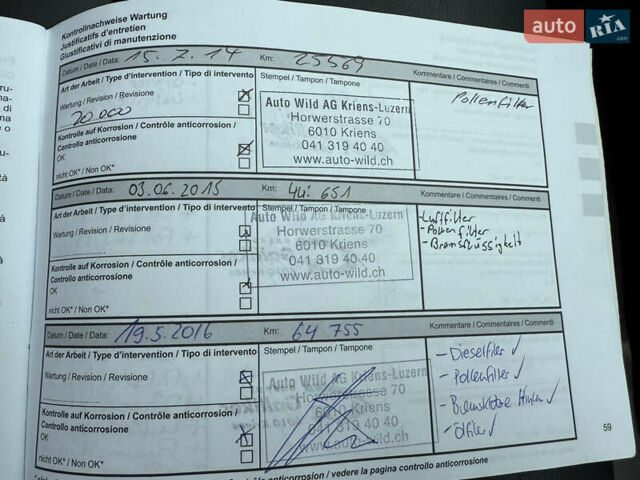 auto RIA.com
Kontrollnachweise Wartung
Justificatifs d'entretien
Giustificativi di manutenzione
Datum / Date / Data: 15.7.14 Km: 25569 Kommentare / Commentaires / Commenti
Art der Arbeit / Type d'intervention / Tipo di intervento Stempel / Tampon / Timbro
Wartung / Revision / Revisione
20 000
Kontrolle auf Korrosion / Contrôle anticorrosion /
Controllo anticorrosione
OK
nicht OK* / Non OK*
Auto Wild AG Kriens-Luzern
Horwerstrasse 70
6010 Kriens
041 319 40 40
www.auto-wild.ch
Pollenfilter
Datum / Date / Data: 03.06.2015 Km: 44' 651 Kommentare / Commentaires / Commenti
Art der Arbeit / Type d'intervention / Tipo di intervento Stempel / Tampon / Timbro
Wartung / Revision / Revisione
Kontrolle auf Korrosion / Contrôle anticorrosion /
Controllo anticorrosione
OK
nicht OK* / Non OK*
Auto Wild AG Kriens-Luzern
Horwerstrasse 70
6010 Kriens
041 319 40 40
www.auto-wild.ch
- Luftfilter
- Pollenfilter
- Bremsflüssigkeit
Datum / Date / Data: 19.5.2016 Km: 64 755 Kommentare / Commentaires / Commenti
Art der Arbeit / Type d'intervention / Tipo di intervento Stempel / Tampon / Timbro
Wartung / Revision / Revisione
Kontrolle auf Korrosion / Contrôle anticorrosion /
Controllo anticorrosione
OK
nicht OK* / Non OK*
Auto Wild AG Kriens-Luzern
Horwerstrasse 70
6010 Kriens
041 319 40 40
www.auto-wild.ch
- Dieselfilter ✓
- Pollenfilter ✓
- Bremsklötze Hinten ✓
- Ölfilter ✓
59
anticorrosion / vedere la pagina controllo anticorrosione